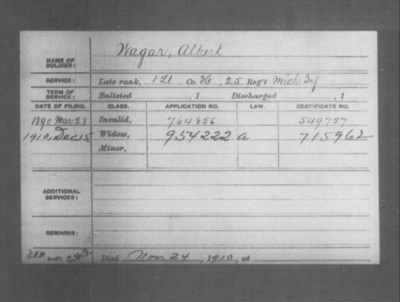 NAME OF SOLDIER: Wagar, Albert
SERVICE: Late rank, 1 Lt Co. K, 25 Reg't Mich Inf
TERM OF SERVICE: Enlisted , 1 Discharged , 1
DATE OF FILING. CLASS. APPLICATION NO. LAW. CERTIFICATE NO.
1890 May 28 Invalid, 764856 549757
1910, Dec 15 Widow, 954222 a 715962
Minor,
ADDITIONAL SERVICES:
REMARKS:
Died Nov 24, 1910, at